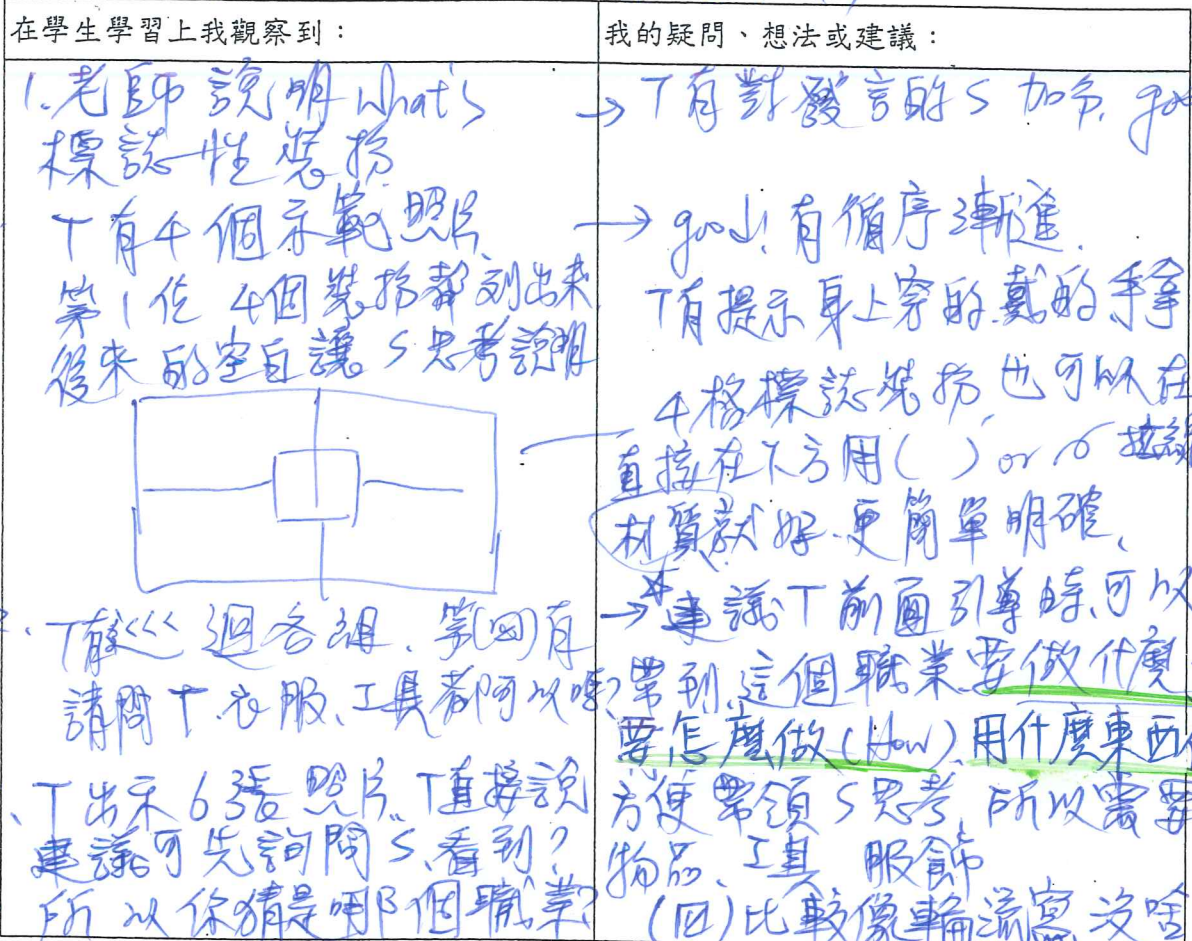 在學生學習上我觀察到：
1.老師說明What's
標誌性裝扮
T有4個示範照片、
第1位 4個裝扮都列出來
後來的空白讓S思考說明
T有巡迴各組、第(四)有
請問T.衣服、工具都可以嗎?
T出示6張照片、T直接說
建議可先詢問S、看到?
所以你猜是哪個職業?
我的疑問、想法或建議：
→T有對發言的S加分. goo
→good! 有循序漸進.
T有提示身上穿的.戴的.手拿
4格標誌裝扮、也可以在
直接在下方用( ) or
材質就好.更簡單明確、
→*建議T前面引導時、可以
帶到、這個職業、要做什麼、
要怎麼做(How)、用什麼東西
方便帶領S思考、所以需要
物品、工具 服飾
(四)比較像輪流寫、沒啥